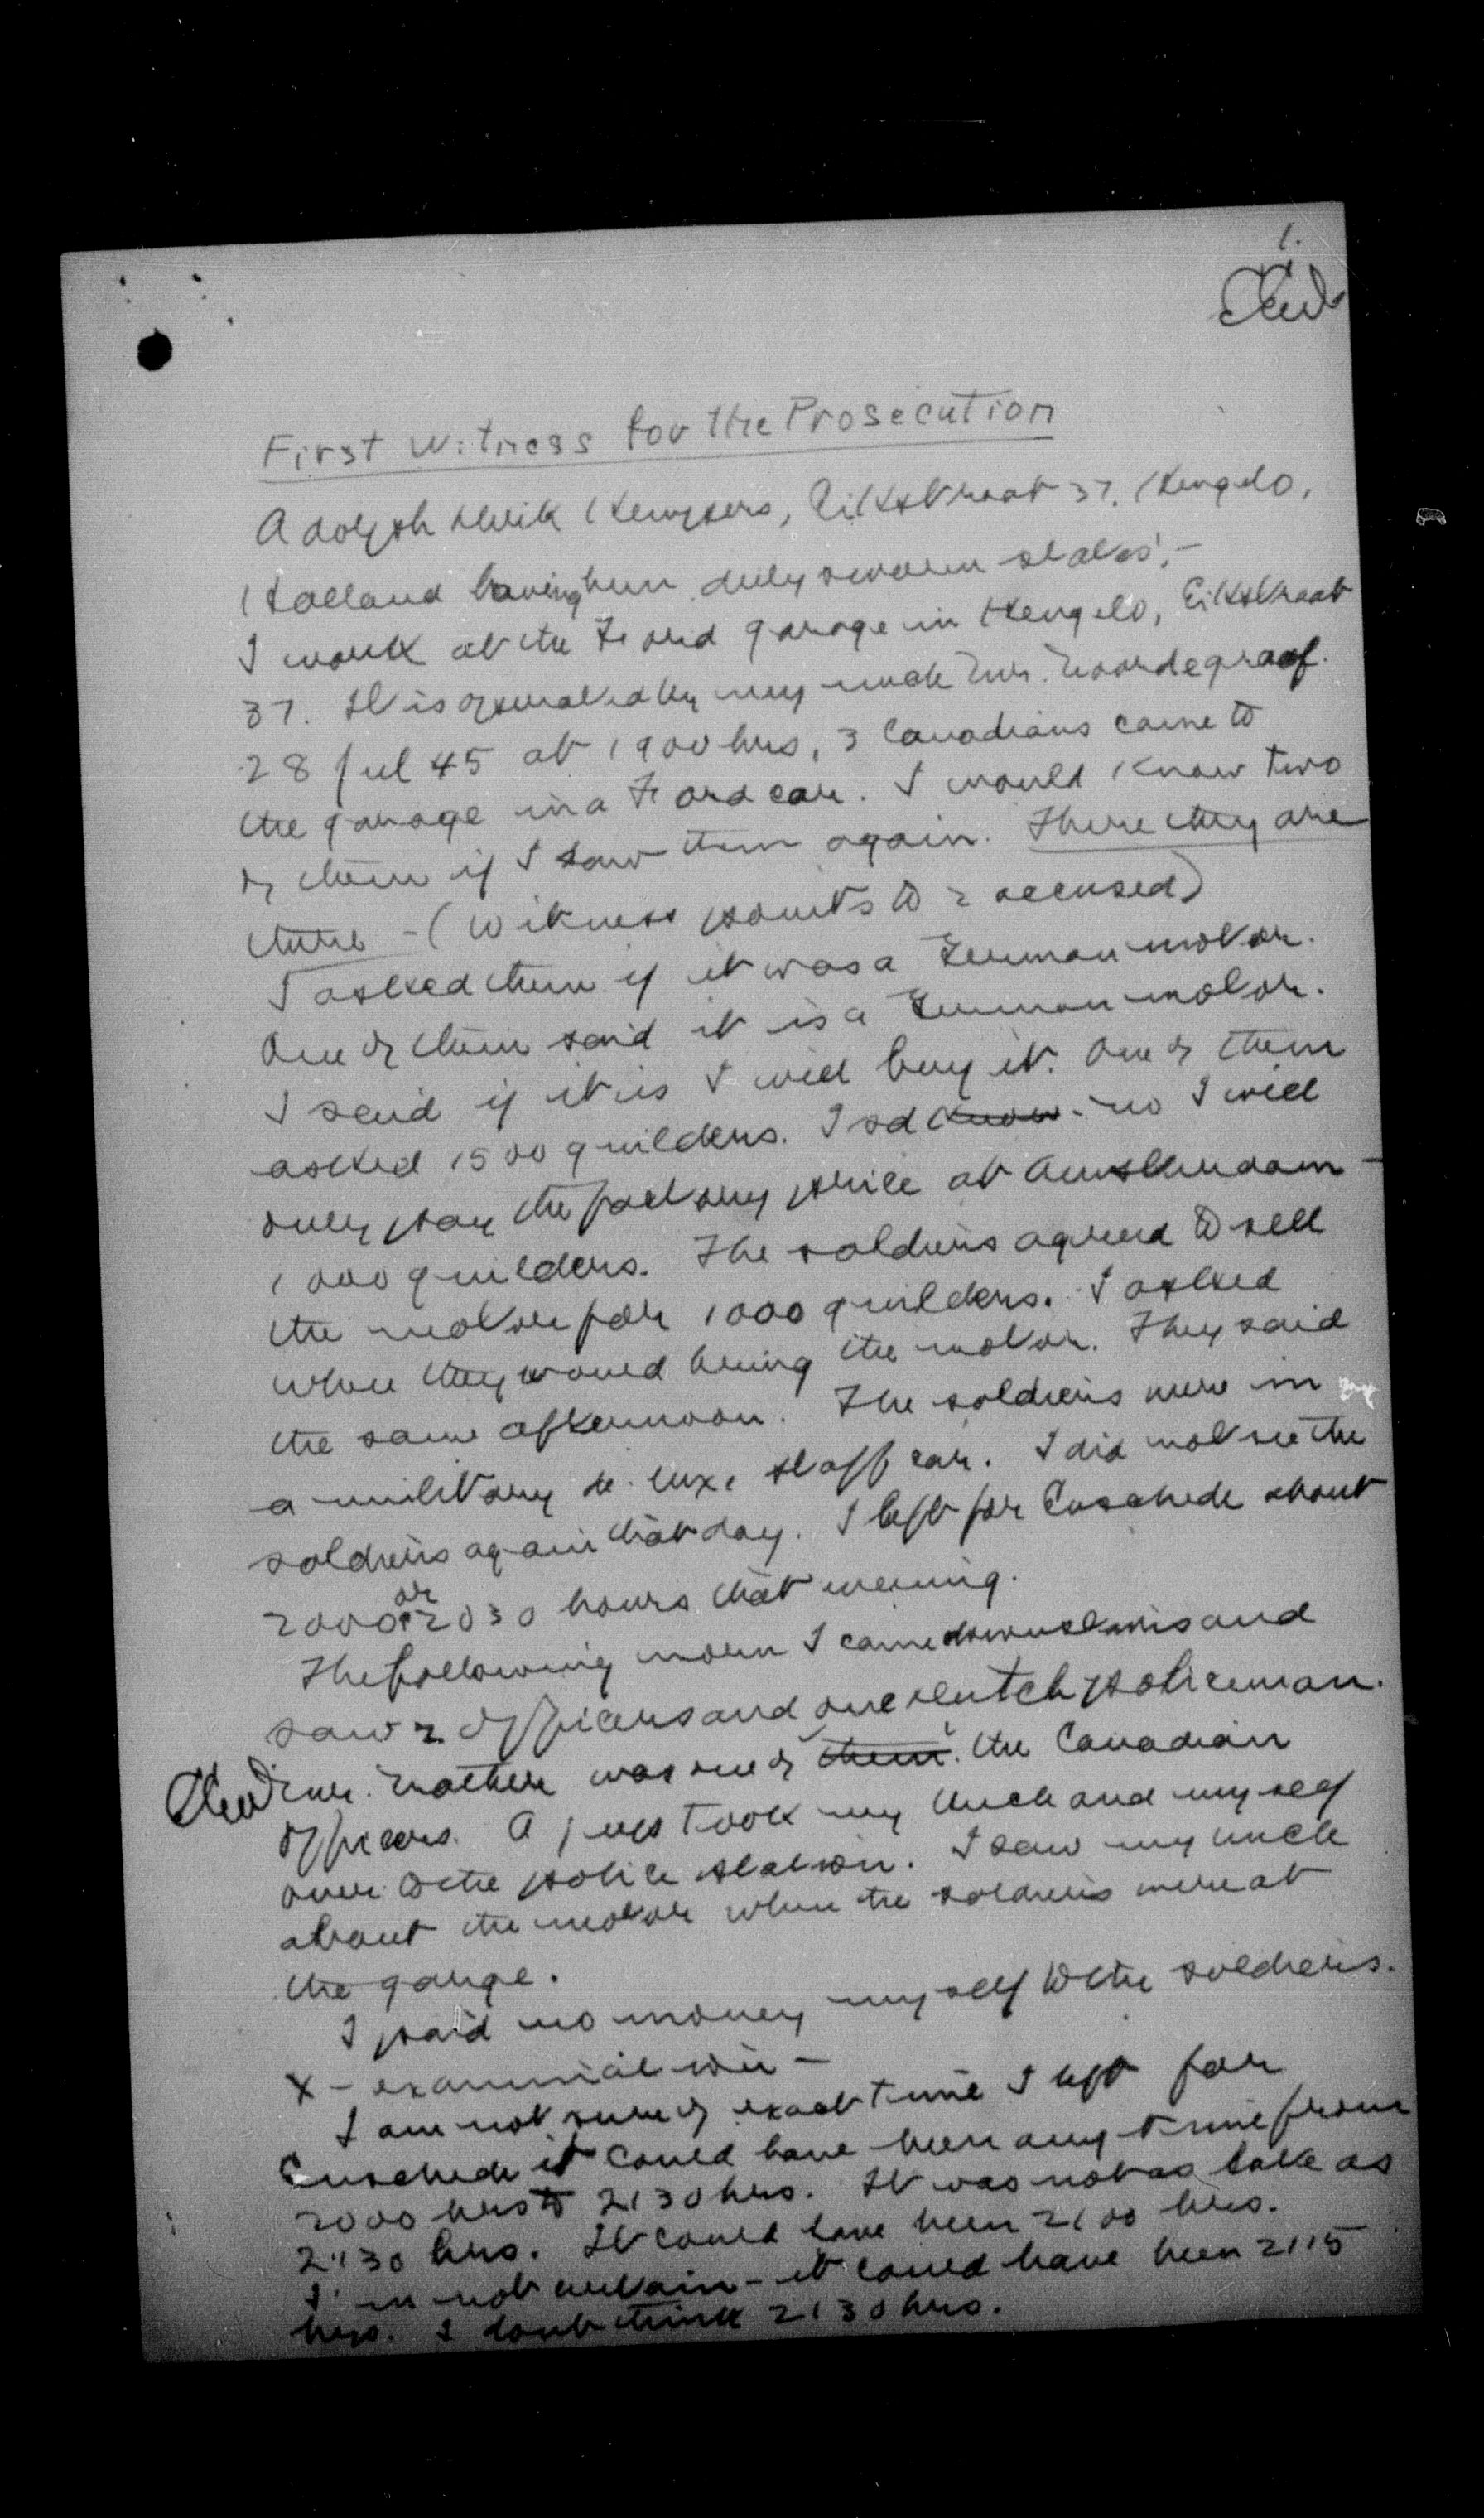 1.
First Witness for the Prosecution
Adolph Kempers, Eikstraat 37, Hengelo,
Holland having been duly sworn states:-
I work at the Ford garage in Hengelo, Eikstraat
37. It is operated by my uncle Mr. Noordegraaf.
28 Jul 45 at 1900 hrs, 3 Canadians came to
the garage in a Ford car. I would know two
of them if I saw them again. There they are
there - (Witness points to 2 accused)
I asked them if it was a German motor.
One of them said it is a German motor.
I said if it is I will buy it. One of them
asked 1500 guilders. I sd know - no I will
only pay the factory price at Amsterdam -
1000 guilders. The soldiers agreed to sell
the motor for 1000 guilders. I asked
when they would bring the motor. They said
the same afternoon. The soldiers were in
a military de luxe staff car. I did not see the
soldiers again that day. I left for Enschede about
2000 or 2030 hours that evening.
The following morn I came downstairs and
saw 2 officers and one Dutch policeman.
Mr. was one of them. the Canadian
officers. A jeep took my uncle and myself
over to the police station. I saw my uncle
about the motor when the soldiers were at
the garage.
I paid no money myself to the soldiers.
X - examination -
I am not sure of exact time I left for
Enschede it could have been any time from
2000 hrs to 2130 hrs. It was not as late as
2130 hrs. It could have been 2100 hrs.
I'm not certain - it could have been 2115
hrs. I dont think 2130 hrs.